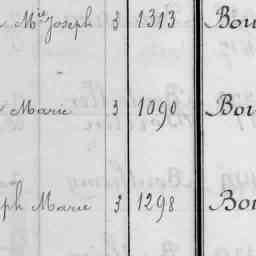 Mie Joseph 3 1313 Bou
Marie 3 1090 Bou
ph Marie 3 1298 Bou